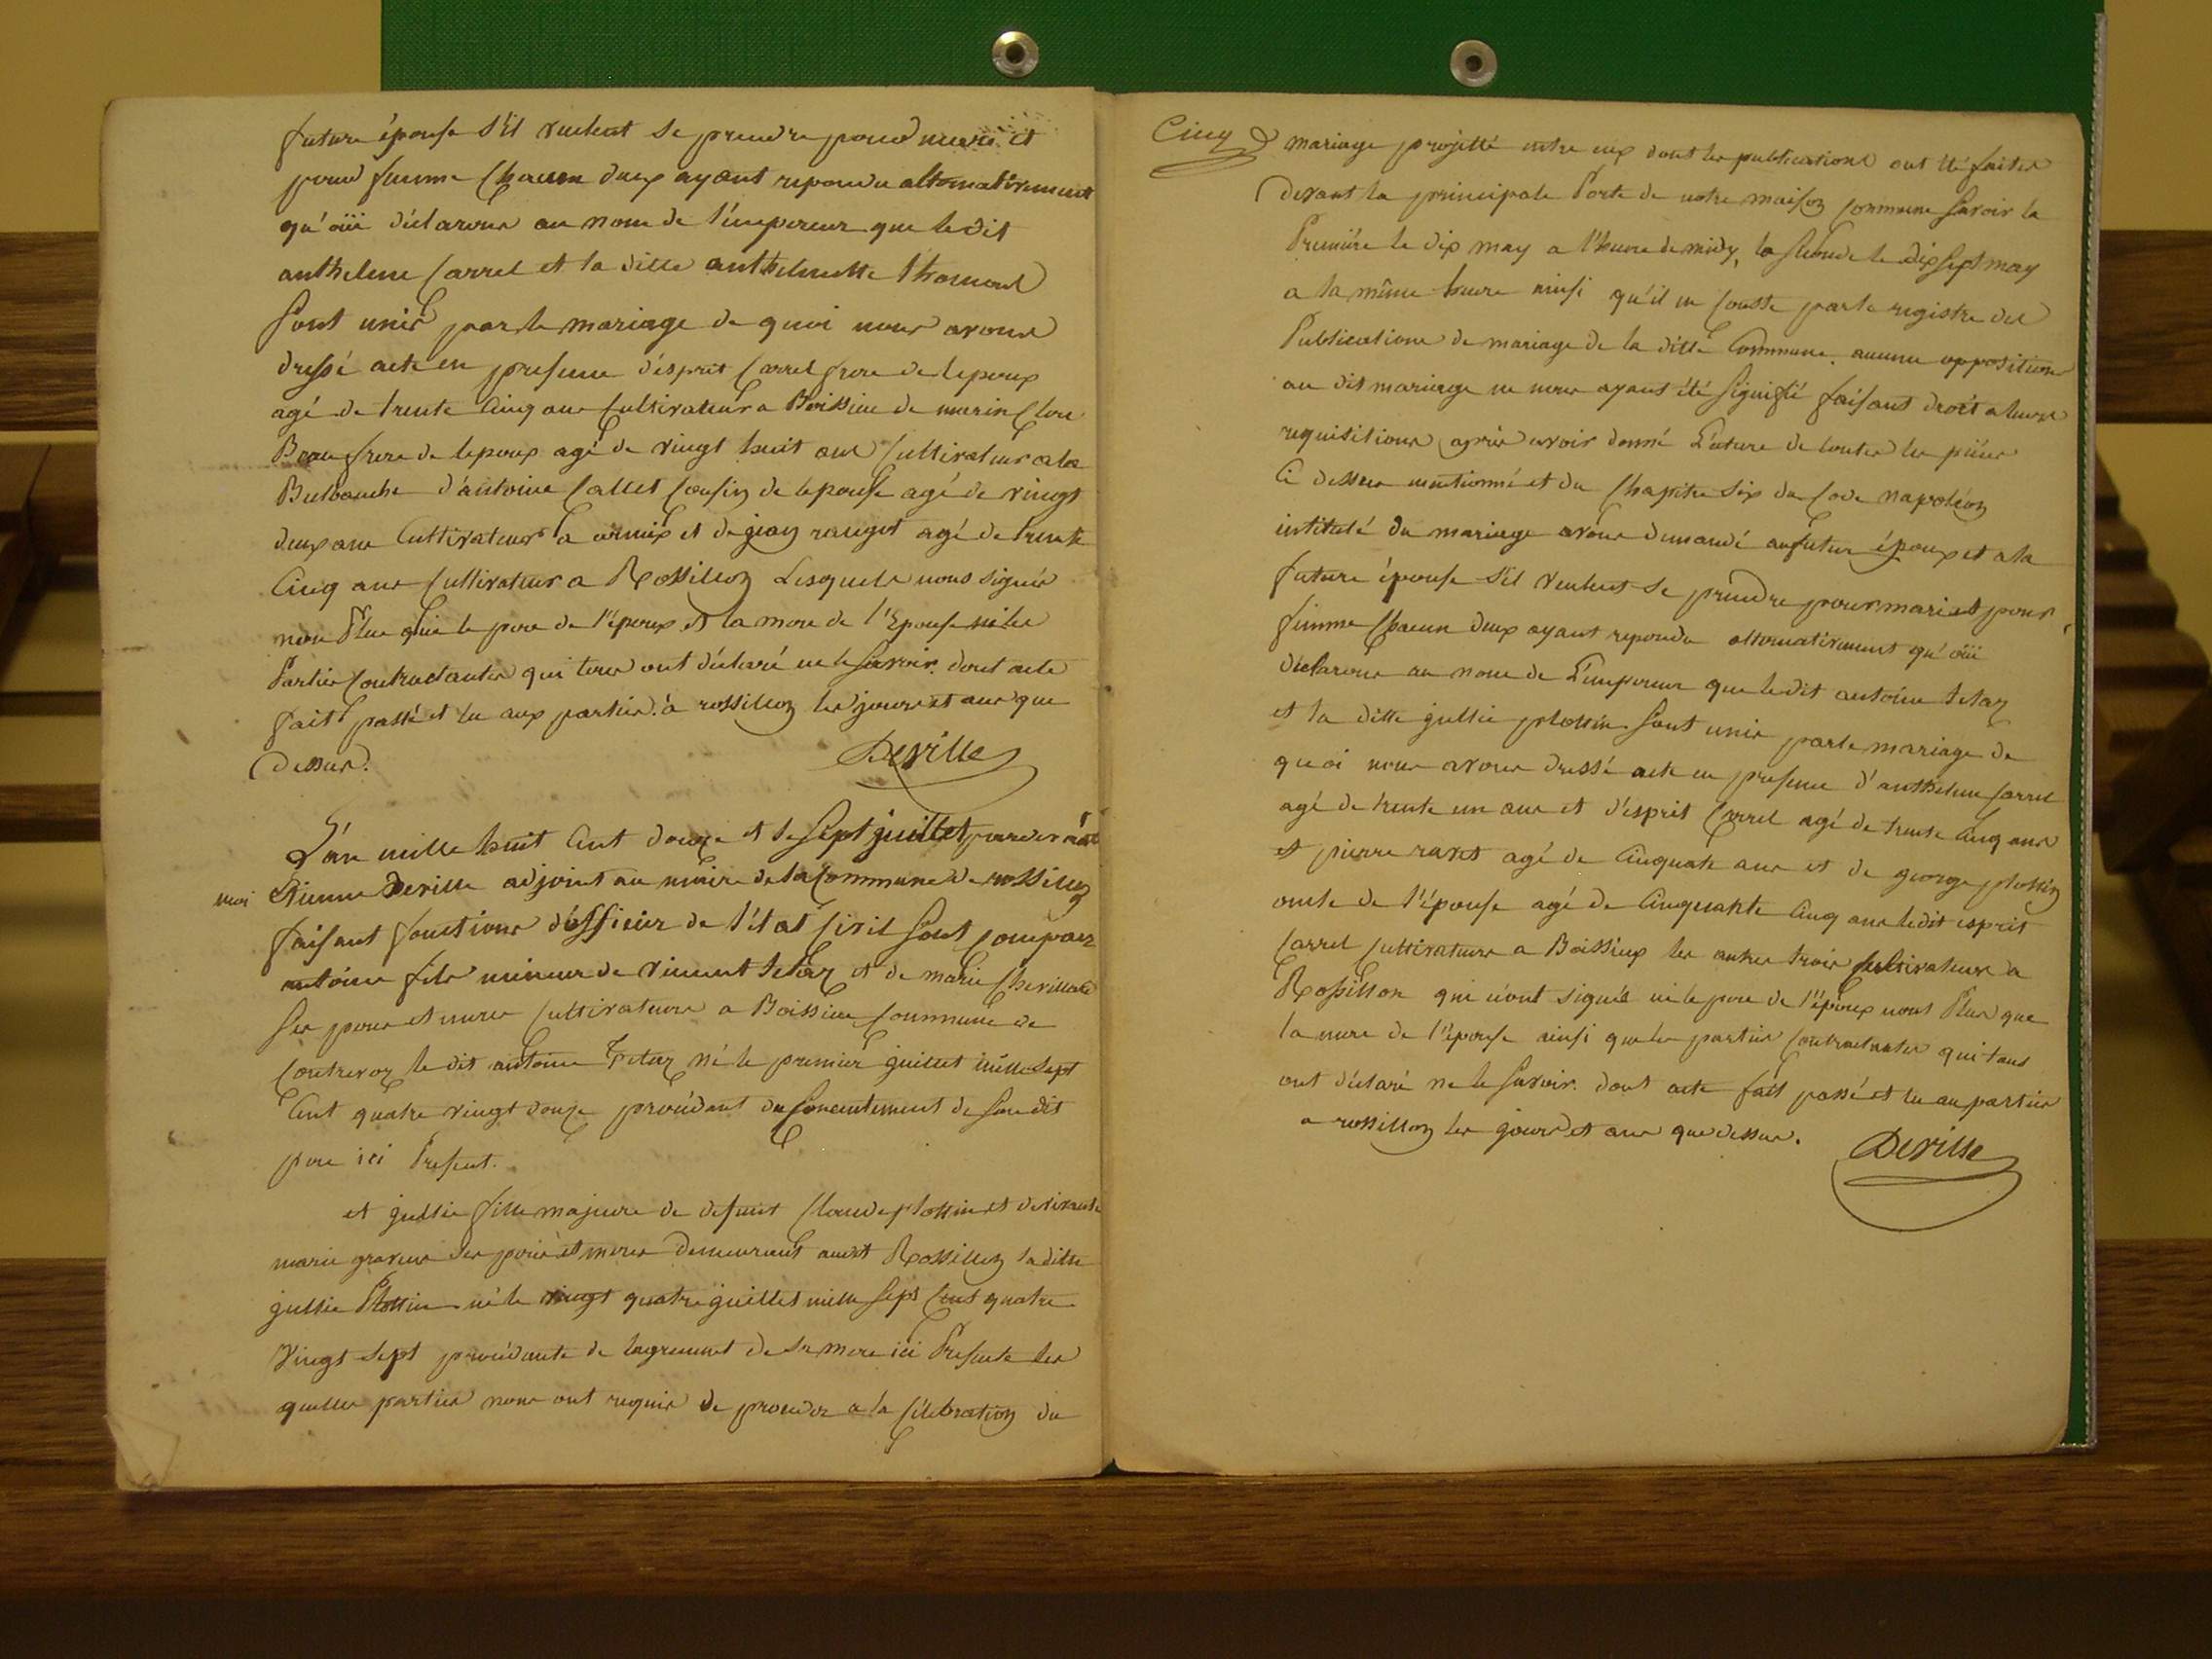 future épouse s'il veulent se prendre pour mari et
pour femme chacun deux ayant repondu alternativement
qu'oüi déclarons au nom de l'empereur que le dit
anthelme Carrel et la ditte anthelmette
sont unis par le mariage de quoi nous avons
dressé acte en presence d'ésprit Carrel frere de lepoux
agé de trente cinq ans cultivateur a Boissieu de
Beau frere de lepoux agé de vingt huit ans cultivateur a la
d'antoine Callet cousin de lepouse agé de vingt
deux ans cultivateur a et de jean agé de trente
cinq ans cultivateur a Rossillon Lesquels nons signés
non Plus que le pere de l'époux et la mere de l'Epouse ni les
Parties contractantes qui tous ont déclaré ne le savoir. dont acte
fait passé et lu aux parties. à rossillon les jours et ans que
dessus.
Deville
L'an mille huit cent douze et le sept juillet pardevant
moi Etienne Deville adjoint au maire de la commune de rossillon
faisant fonctions d'officier de l'état civil sont comparu
antoine fils mineur de vincent tetaz et de marie
ses peres et meres cultivateurs a Boissieu commune de
contrevoz le dit antoine Tetaz né le premier juillet mille sept
cent quatre vingt douze procédant du consentement de son dit
pere ici Present.
et jullie fille majeure de defunt claude plottin et de vivante
marie ses peres et meres demeurant audit Rossillon la ditte
jullie Plottin né le vingt quatre juillet mille sept cent quatre
vingt sept procédante de lagrement de sa mere ici Presente les
quelles parties nous ont requis de proceder a la célébration du
Cinq mariage projetté entre eux dont les publications ont été faites
devant la principale Porte de notre maison commune savoir la
Premiére le dix may a l'heure de midy, la seconde le dix sept may
a la même heure ainsi qu'il en conste par le registre des
Publications de mariage de la ditte commune. aucune opposition
au dit mariage ne nous ayant été signifié faisant droit a leurs
requisitions aprés avoir donné Lecture de toutes les piéces
ci dessus mentionné et du chapitre six du code napoléon
intitulé du mariage avons demandé au futur époux et a la
future épouse s'il veulent se prendre pour mari et pour
femme chacun deux ayant repondu alternativement qu'oüi
déclarons au nom de L'empereur que le dit antoine tetaz
et la ditte jullie plottin sont unis par le mariage de
quoi nous avons dressé acte en presence d'anthelme Carrel
agé de trente un ans et d'esprit Carrel agé de trente cinq ans
et pierre ravet agé de cinquante ans et de george plottin
oncle de l'épouse agé de cinquante cinq ans le dit esprit
Carrel cultivateur a Boissieux les autres trois cultivateurs a
Rossillon qui n'ont signés ni le pere de l'époux nont Plus que
la mere de l'épouse ainsi que les parties contractantes qui tous
ont déclaré ne le savoir. dont acte fait passé et lu au parties
a rossillon les jours et ans que dessus.
Deville